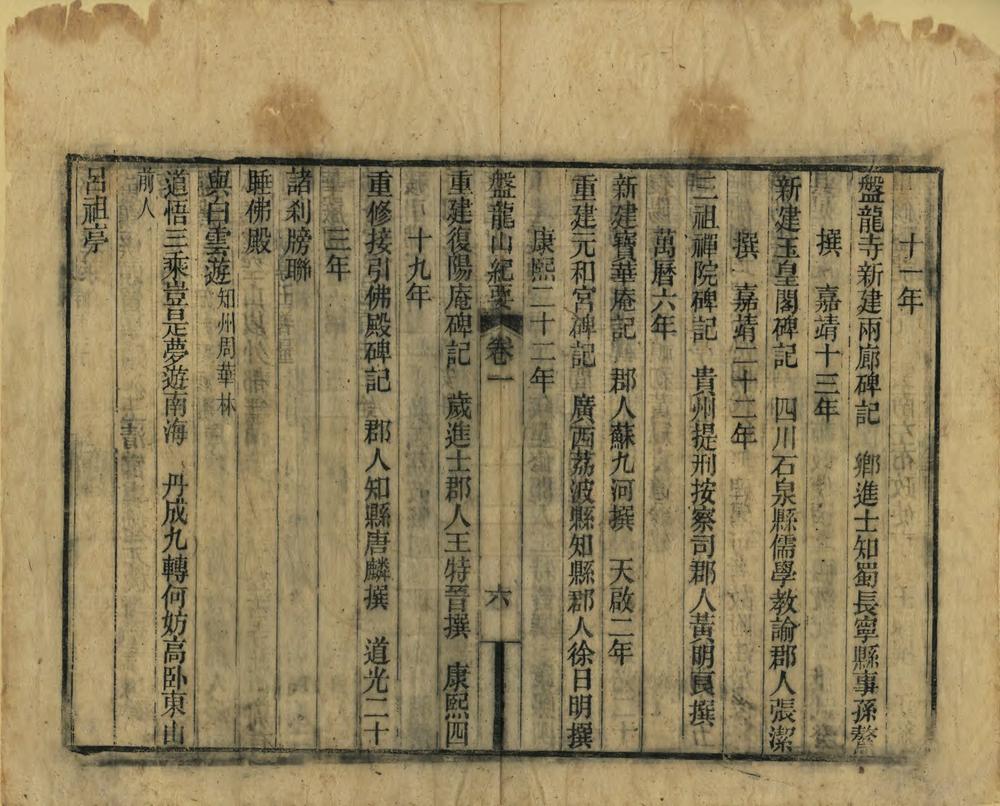 十一年
盤龍寺新建兩廊碑記　鄉進士知蜀長寧縣事孫鰲
撰　嘉靖十三年
新建玉皇閣碑記　四川石泉縣儒學教諭郡人張潔
撰　嘉靖二十二年
三祖禪院碑記　貴州提刑按察司郡人黃明良撰
萬曆六年
新建寶華庵記　郡人蘇九河撰　天啟二年
重建元和宮碑記　廣西荔波縣知縣郡人徐日明撰
康熙二十二年
盤龍山紀要　卷一　六
重建復陽庵碑記　歲進士郡人王特晉撰　康熙四
十九年
重修接引佛殿碑記　郡人知縣唐麟撰　道光二十
三年
諸刹牓聯
睡佛殿
與白雲遊知州周華林
道悟三乘豈是夢遊南海　丹成九轉何妨高卧東山
前人
呂祖亭